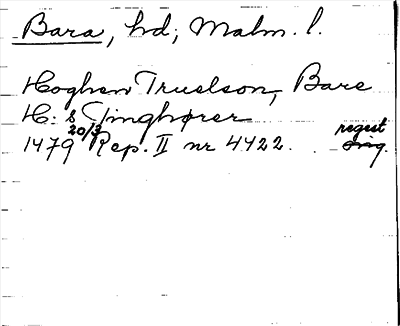 Bara, hd; Malm. l.
Hoghen Truelson, Bare
H: s Tinghører
20/3
1479 Rep. II nr 4422. regest
orig.